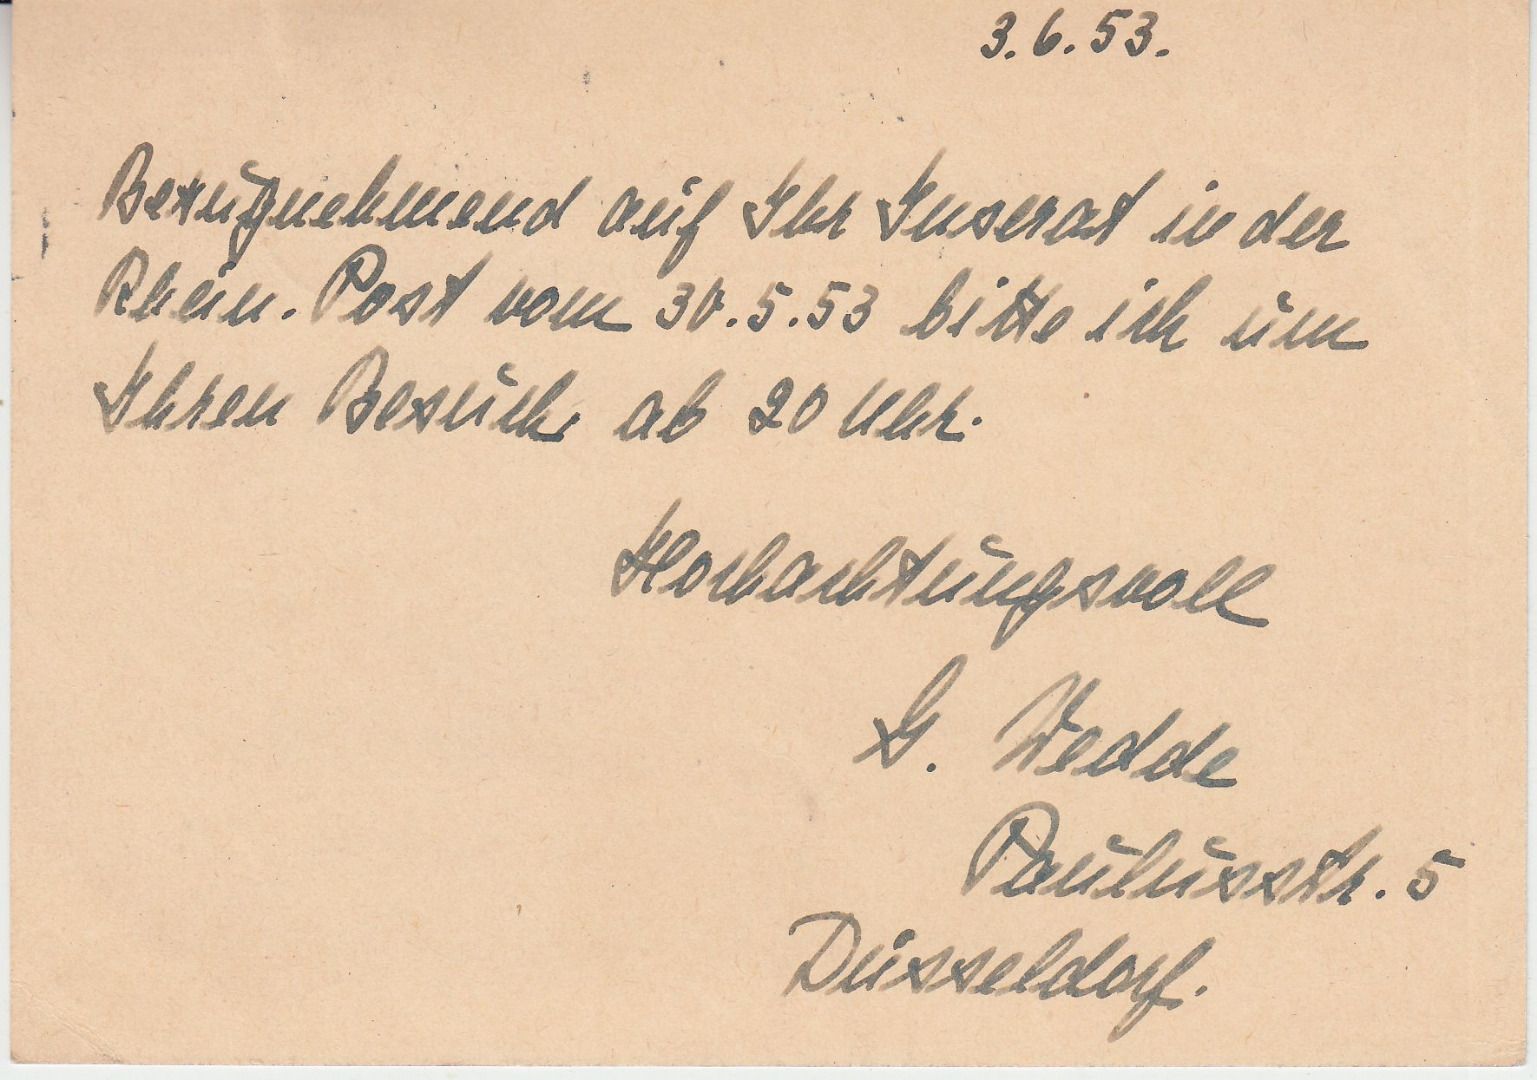 3.6.53.
Bezugnehmend auf Ihr Inserat in der
Rhein. Post vom 30.5.53 bitte ich um
Ihren Besuch ab 20 Uhr.
Hochachtungsvoll
G. Wedde
Paulusstr. 5
Düsseldorf.